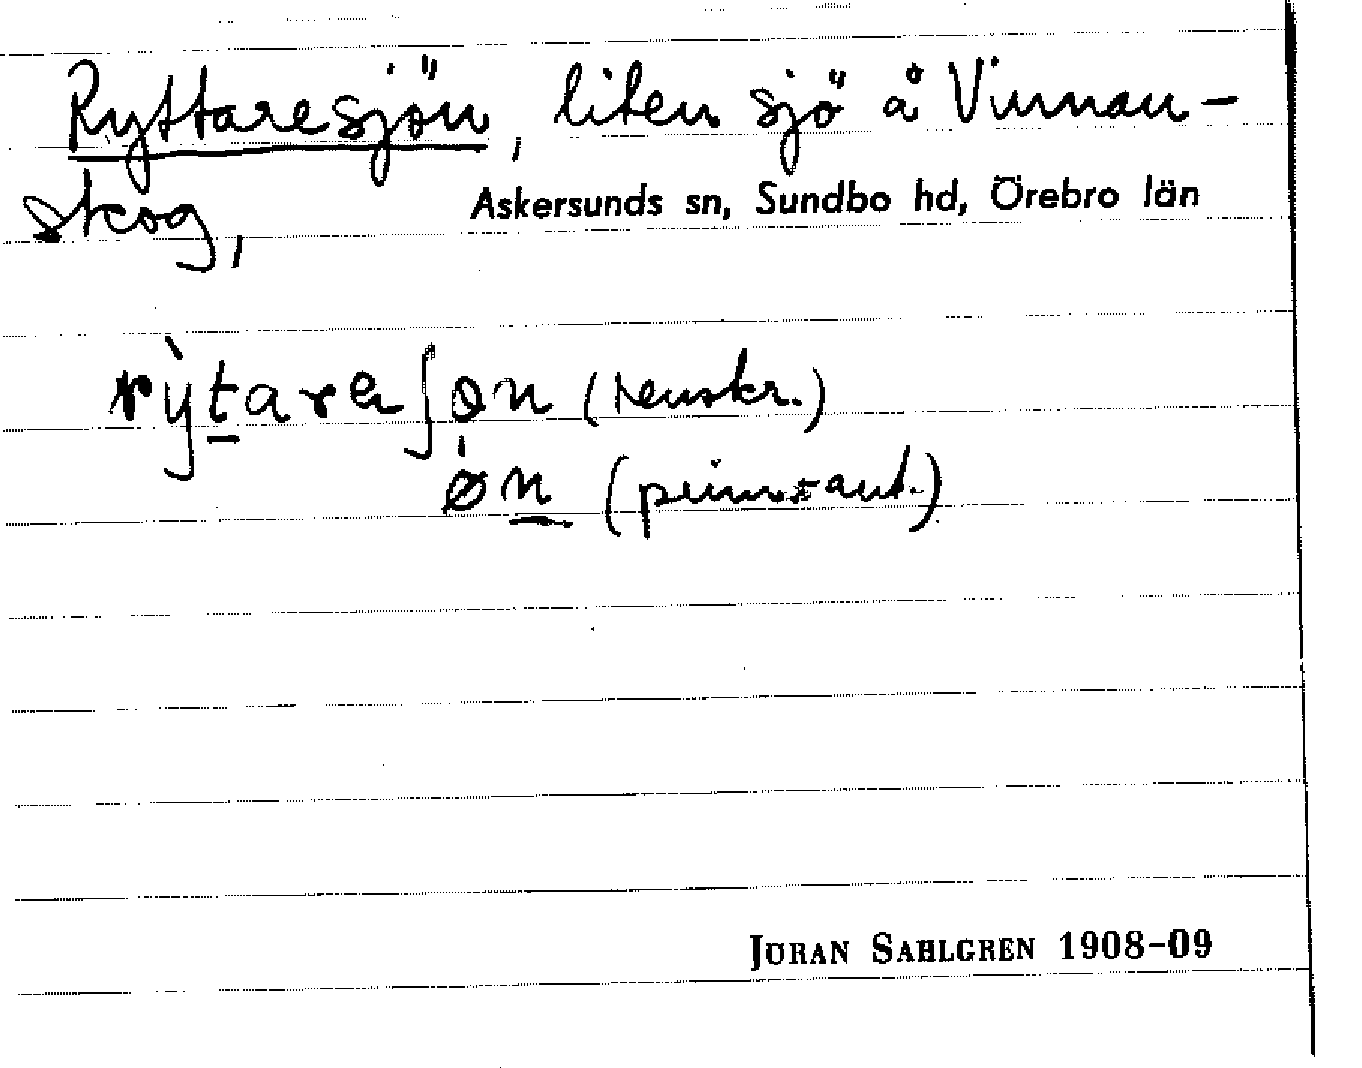 Ryttaresjön, liten sjö å Vinnan-
skog,
Askersunds sn, Sundbo hd, Örebro län
rỳtareʃøn (renskr.)
øn (prim.)
JÖRAN SAHLGREN 1908–09